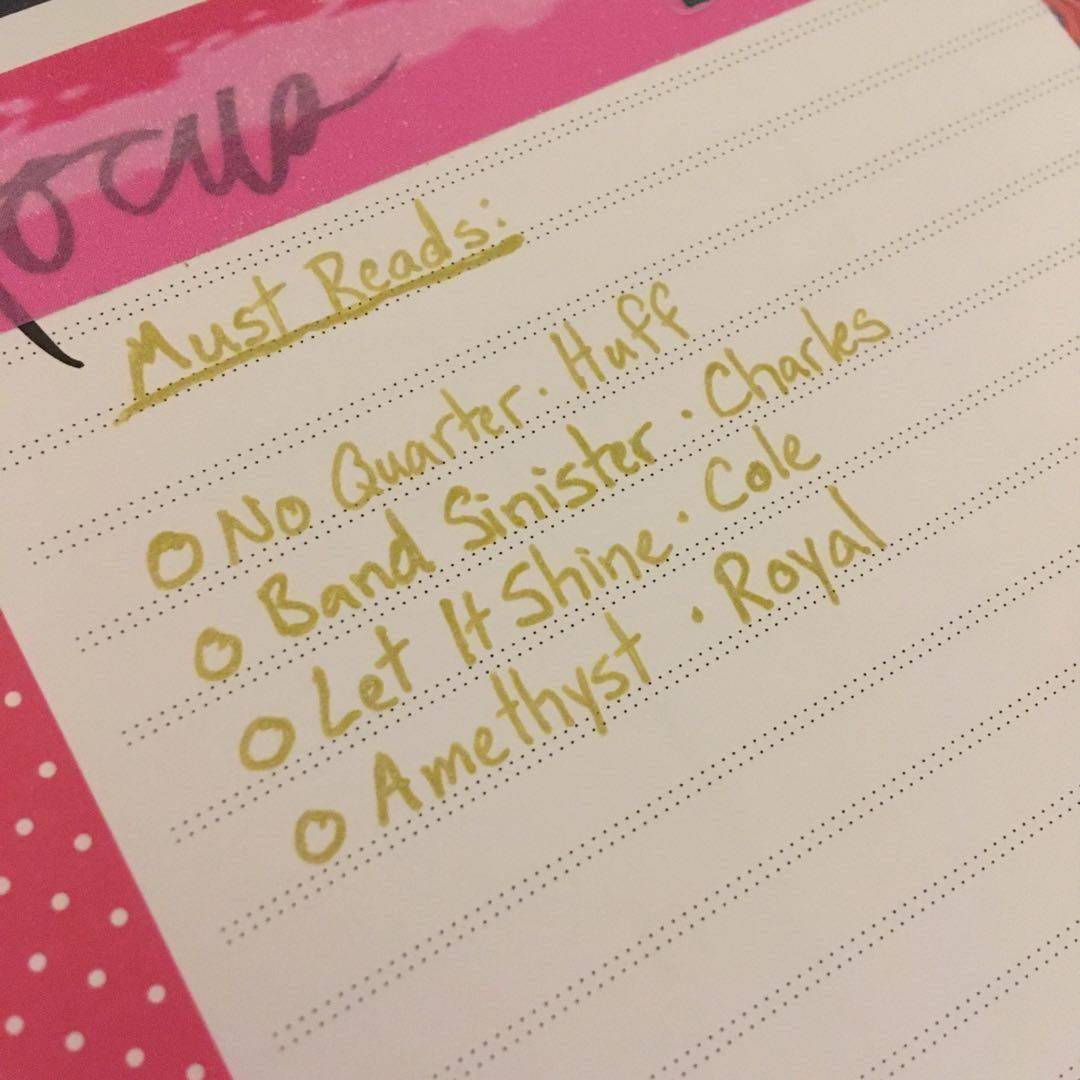 ocus
Must Reads:
No Quarter · Huff
Band Sinister · Charles
Let It Shine · Cole
Amethyst · Royal